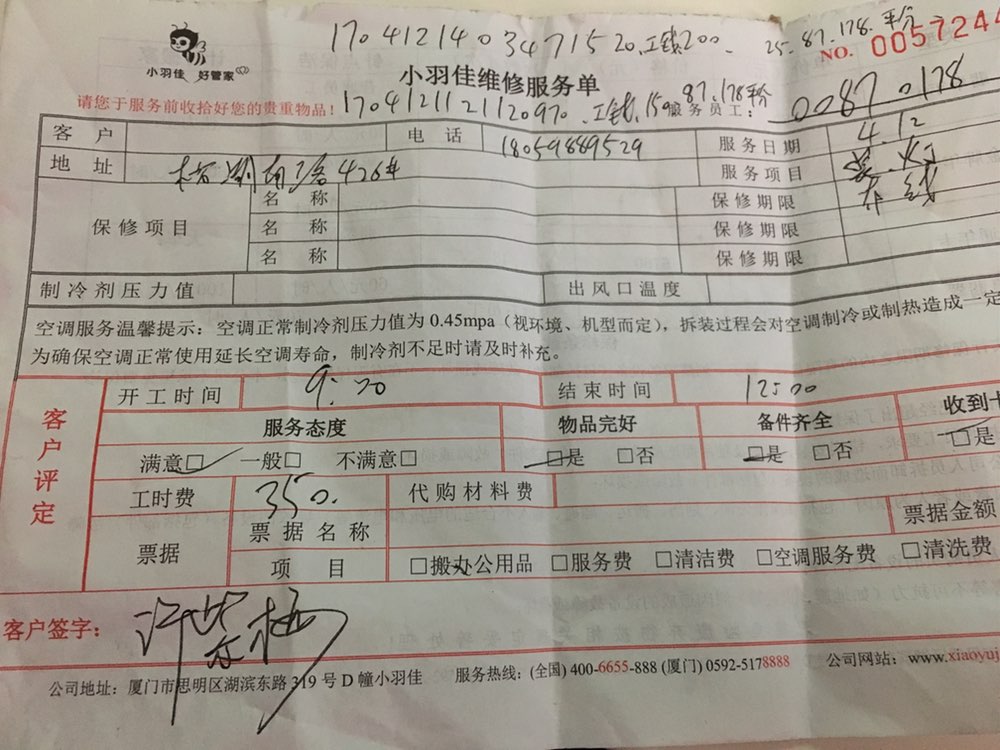 17041214034715 20.工钱200. 25.87.178.平分
小羽佳 好管家
小羽佳维修服务单
NO. 0057244
请您于服务前收拾好您的贵重物品！
1704121121120970.工钱.150 87.178平分
服务员工： 0087.0178
客户 电话 18059889529 服务日期 4.12
地址 426# 服务项目
保修项目 名称 保修期限
名称 保修期限
名称 保修期限
制冷剂压力值 出风口温度
空调服务温馨提示：空调正常制冷剂压力值为0.45mpa（视环境、机型而定），拆装过程会对空调制冷或制热造成一定
为确保空调正常使用延长空调寿命，制冷剂不足时请及时补充。
客户评定
开工时间 9:20 结束时间 12:00
服务态度 物品完好 备件齐全 收到
满意□ 一般□ 不满意□ □是 □否 □是 □否 □是
工时费 350. 代购材料费
票据 票据名称 票据金额
项目 □搬办公用品 □服务费 □清洁费 □空调服务费 □清洗费
客户签字：
公司地址：厦门市思明区湖滨东路319号D幢小羽佳 服务热线：(全国) 400-6655-888 (厦门) 0592-5178888 公司网站：www.xiaoyuj